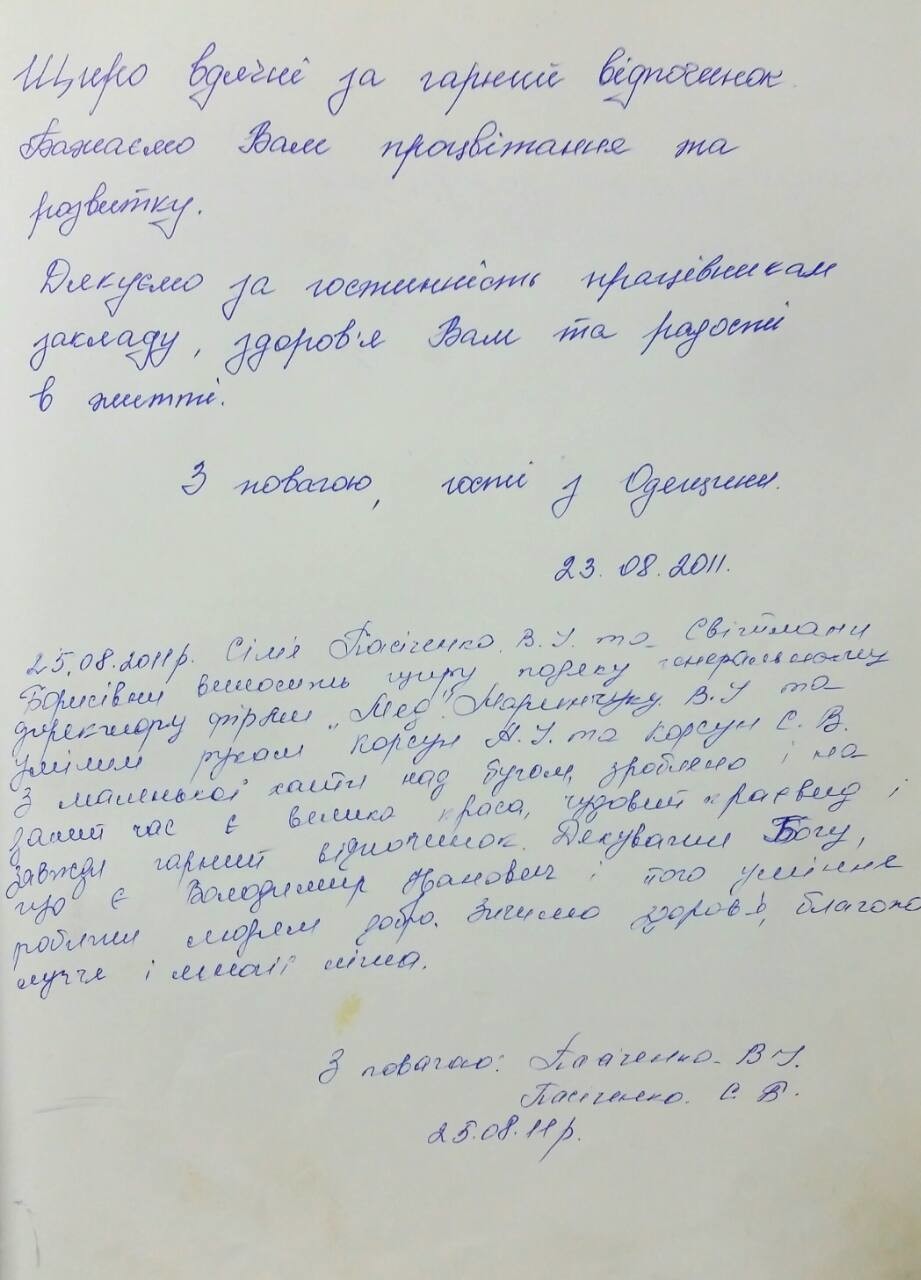 Щиро вдячні за гарний відпочинок.
Бажаємо Вам процвітання та
розвитку.
Дякуємо за гостинність працівникам
закладу, здоров'я Вам та радості
в житті.
З повагою, гості з Одещини.
23.08.2011.
25.08.2011р. Сім'я Пасіченко В.І. та Світлани
Борисівни виносить щиру подяку генеральному
директору фірми „Мед" Маринчуку В.І та
умілим рукам Корсун А.І. та Корсун С.В.
З маленької хати над Бугом, зроблено і на
даний час є велика краса, чудовий краєвид і
завжди гарний відпочинок. Дякувати Богу,
що є Володимир Іванович і його уміння
робити людям добро. Зичимо здоров'я, благопо
луччя і многії літа.
З повагою: Пасіченко В.І.
Пасіченко. С.Б.
25.08.11р.